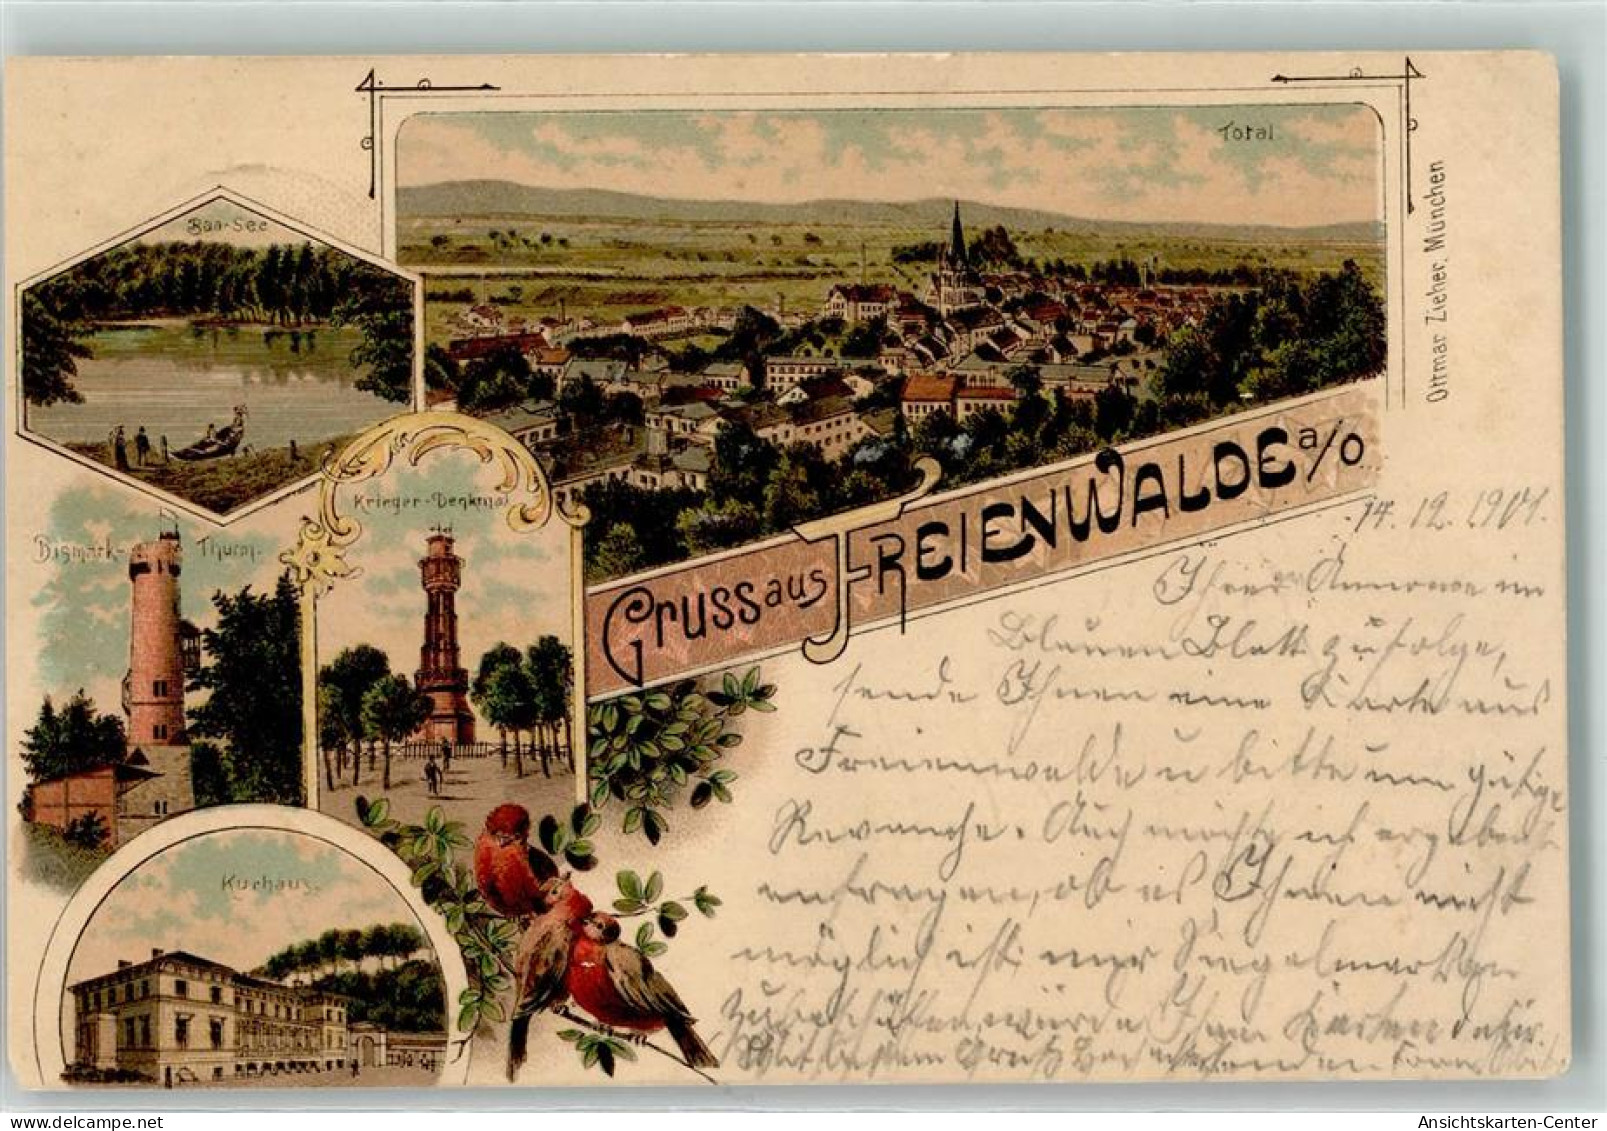 Total
Baa-See
Ottmar Zieher, München
Krieger-Denkmal
Bismark-Thurm.
Gruss aus FREIENWALDE a/O
14.12.1901.
Ihrer Annonce im
Blauen Blatt zufolge,
sende Ihnen eine Karte aus
Freienwalde u bitte um gütige
Revanche. Auch möchte ich ergebenst
anfragen, ob es Ihnen nicht
möglich ist mir Siegelmarken
zu beschaffen, würde Ihnen Karten dafür.
Mit bestem Gruß
Kurhaus.
Ansichtskarten-Center